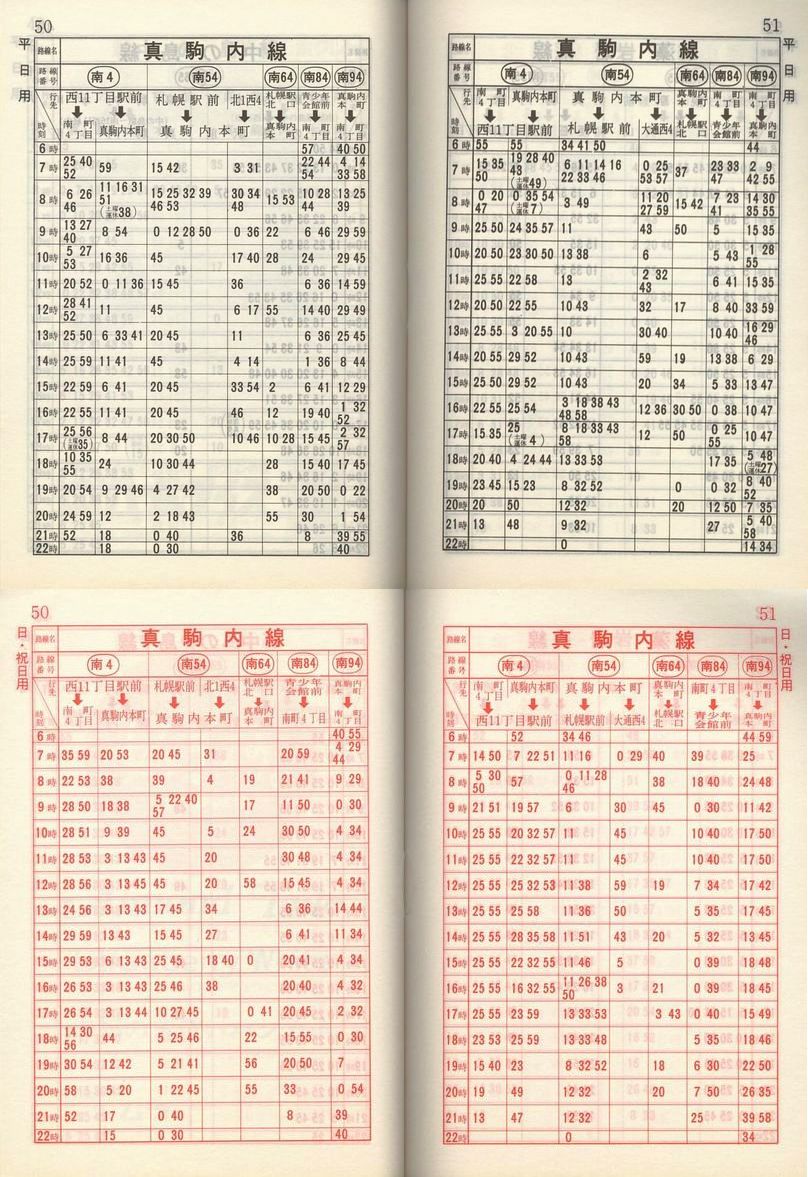 50
平日用
路線名 真駒内線
路線番号 南4 南54 南64 南84 南94
行先 時刻 西11丁目駅前 札幌駅前 北1西4 札幌駅北口 青少年会館前 真駒内本町
南町4丁目 真駒内本町 真駒内本町 真駒内本町 南町4丁目 南町4丁目
6時 57 40 50
7時 25 40 52 59 15 42 3 31 22 44 54 4 14 33 58
8時 6 26 46 11 16 31 51 (土曜運休38) 15 25 32 39 46 53 30 34 48 15 53 10 28 44 13 25 39
9時 13 27 40 8 54 0 12 28 50 0 36 22 6 46 29 59
10時 5 27 53 16 36 45 17 40 28 24 29 45
11時 20 52 0 11 36 15 45 36 6 36 14 59
12時 28 41 52 11 45 6 17 55 14 40 29 49
13時 25 50 6 33 41 20 45 11 6 36 25 45
14時 25 59 11 41 45 4 14 1 36 8 44
15時 22 59 6 41 20 45 33 54 2 6 41 12 29
16時 22 55 11 41 20 45 46 12 19 40 1 32 52
17時 25 56 (土曜運休35) 8 44 20 30 50 10 46 10 28 15 45 2 32 57
18時 10 35 55 24 10 30 44 28 15 40 17 45
19時 20 54 9 29 46 4 27 42 38 20 50 0 22
20時 24 59 12 2 18 43 55 30 1 54
21時 52 18 0 40 36 8 39 55
22時 18 0 30 40
51
平日用
路線名 真駒内線
路線番号 南4 南54 南64 南84 南94
行先 時刻 南町4丁目 真駒内本町 真駒内本町 真駒内本町 南町4丁目 南町4丁目
西11丁目駅前 札幌駅前 大通西4 札幌駅北口 青少年会館前 真駒内本町
6時 55 55 34 41 50 44
7時 15 35 50 19 28 40 48 (土曜運休49) 6 11 14 16 22 33 46 0 25 53 57 37 23 33 47 2 9 42 55
8時 0 20 47 0 35 54 (土曜運休7) 3 49 11 20 27 59 15 42 7 23 41 14 30 35 55
9時 25 50 24 35 57 11 43 50 5 15 35
10時 20 50 23 30 50 13 38 6 5 43 1 28 55
11時 25 55 22 58 13 2 32 43 6 41 15 35
12時 20 50 22 55 10 43 32 17 8 40 33 59
13時 25 55 3 20 55 10 30 40 10 40 16 29 46
14時 20 55 29 52 10 43 59 19 13 38 6 29
15時 25 50 29 52 10 43 20 34 5 33 13 47
16時 22 55 25 54 3 18 38 43 48 58 12 36 30 50 0 38 10 47
17時 15 35 25 (土曜運休4) 8 18 33 43 58 12 50 0 25 55 10 47
18時 20 40 4 24 44 13 33 53 17 35 5 48 (土曜運休27)
19時 23 45 15 23 8 32 52 0 0 32 8 40 52
20時 20 50 12 32 20 12 50 7 35
21時 13 48 9 32 27 5 40 58
22時 0 14 34
50
日・祝日用
路線名 真駒内線
路線番号 南4 南54 南64 南84 南94
行先 時刻 西11丁目駅前 札幌駅前 北1西4 札幌駅北口 青少年会館前 真駒内本町
南町4丁目 真駒内本町 真駒内本町 真駒内本町 南町4丁目 南町4丁目
6時 40 55
7時 35 59 20 53 20 45 31 20 59 4 29 44
8時 22 53 38 39 4 19 21 41 9 29
9時 28 50 18 38 5 22 40 57 17 11 50 0 30
10時 28 51 9 39 45 5 24 30 50 4 34
11時 28 53 3 13 43 45 20 30 48 4 34
12時 28 56 3 13 45 45 20 58 15 45 4 34
13時 24 56 3 13 43 17 45 34 6 36 14 44
14時 29 59 13 43 15 45 27 6 41 11 34
15時 29 53 6 13 43 25 45 18 40 0 20 41 4 34
16時 26 53 3 13 43 25 46 38 20 40 4 32
17時 26 54 3 13 44 10 27 45 0 41 20 45 2 32
18時 14 30 56 44 5 25 46 22 15 55 0 30
19時 30 54 12 42 5 21 41 56 20 50 7
20時 58 5 20 1 22 45 55 33 0 54
21時 52 17 0 40 8 39
22時 15 0 30 40
51
日・祝日用
路線名 真駒内線
路線番号 南4 南54 南64 南84 南94
行先 時刻 南町4丁目 真駒内本町 真駒内本町 真駒内本町 南町4丁目 南町4丁目
西11丁目駅前 札幌駅前 大通西4 札幌駅北口 青少年会館前 真駒内本町
6時 52 34 46 44 59
7時 14 50 7 22 51 11 16 0 29 40 39 25
8時 5 30 50 57 0 11 28 46 38 18 40 24 48
9時 21 51 19 57 6 30 45 0 30 11 42
10時 25 55 20 32 57 11 45 10 40 17 50
11時 25 55 22 32 57 11 45 10 40 17 50
12時 25 55 25 32 53 11 38 59 19 7 34 17 42
13時 25 55 25 58 11 36 50 5 35 17 45
14時 25 55 28 35 58 11 51 43 20 5 32 13 45
15時 25 55 22 32 55 11 46 5 0 39 18 48
16時 25 55 16 32 55 11 26 38 50 3 21 0 39 18 45
17時 25 55 23 59 13 33 53 3 43 0 40 15 49
18時 23 53 25 59 13 33 48 5 35 18 46
19時 15 40 23 8 32 52 18 6 30 22 50
20時 19 49 12 32 20 7 50 26 35
21時 13 47 12 32 25 39 58
22時 0 34